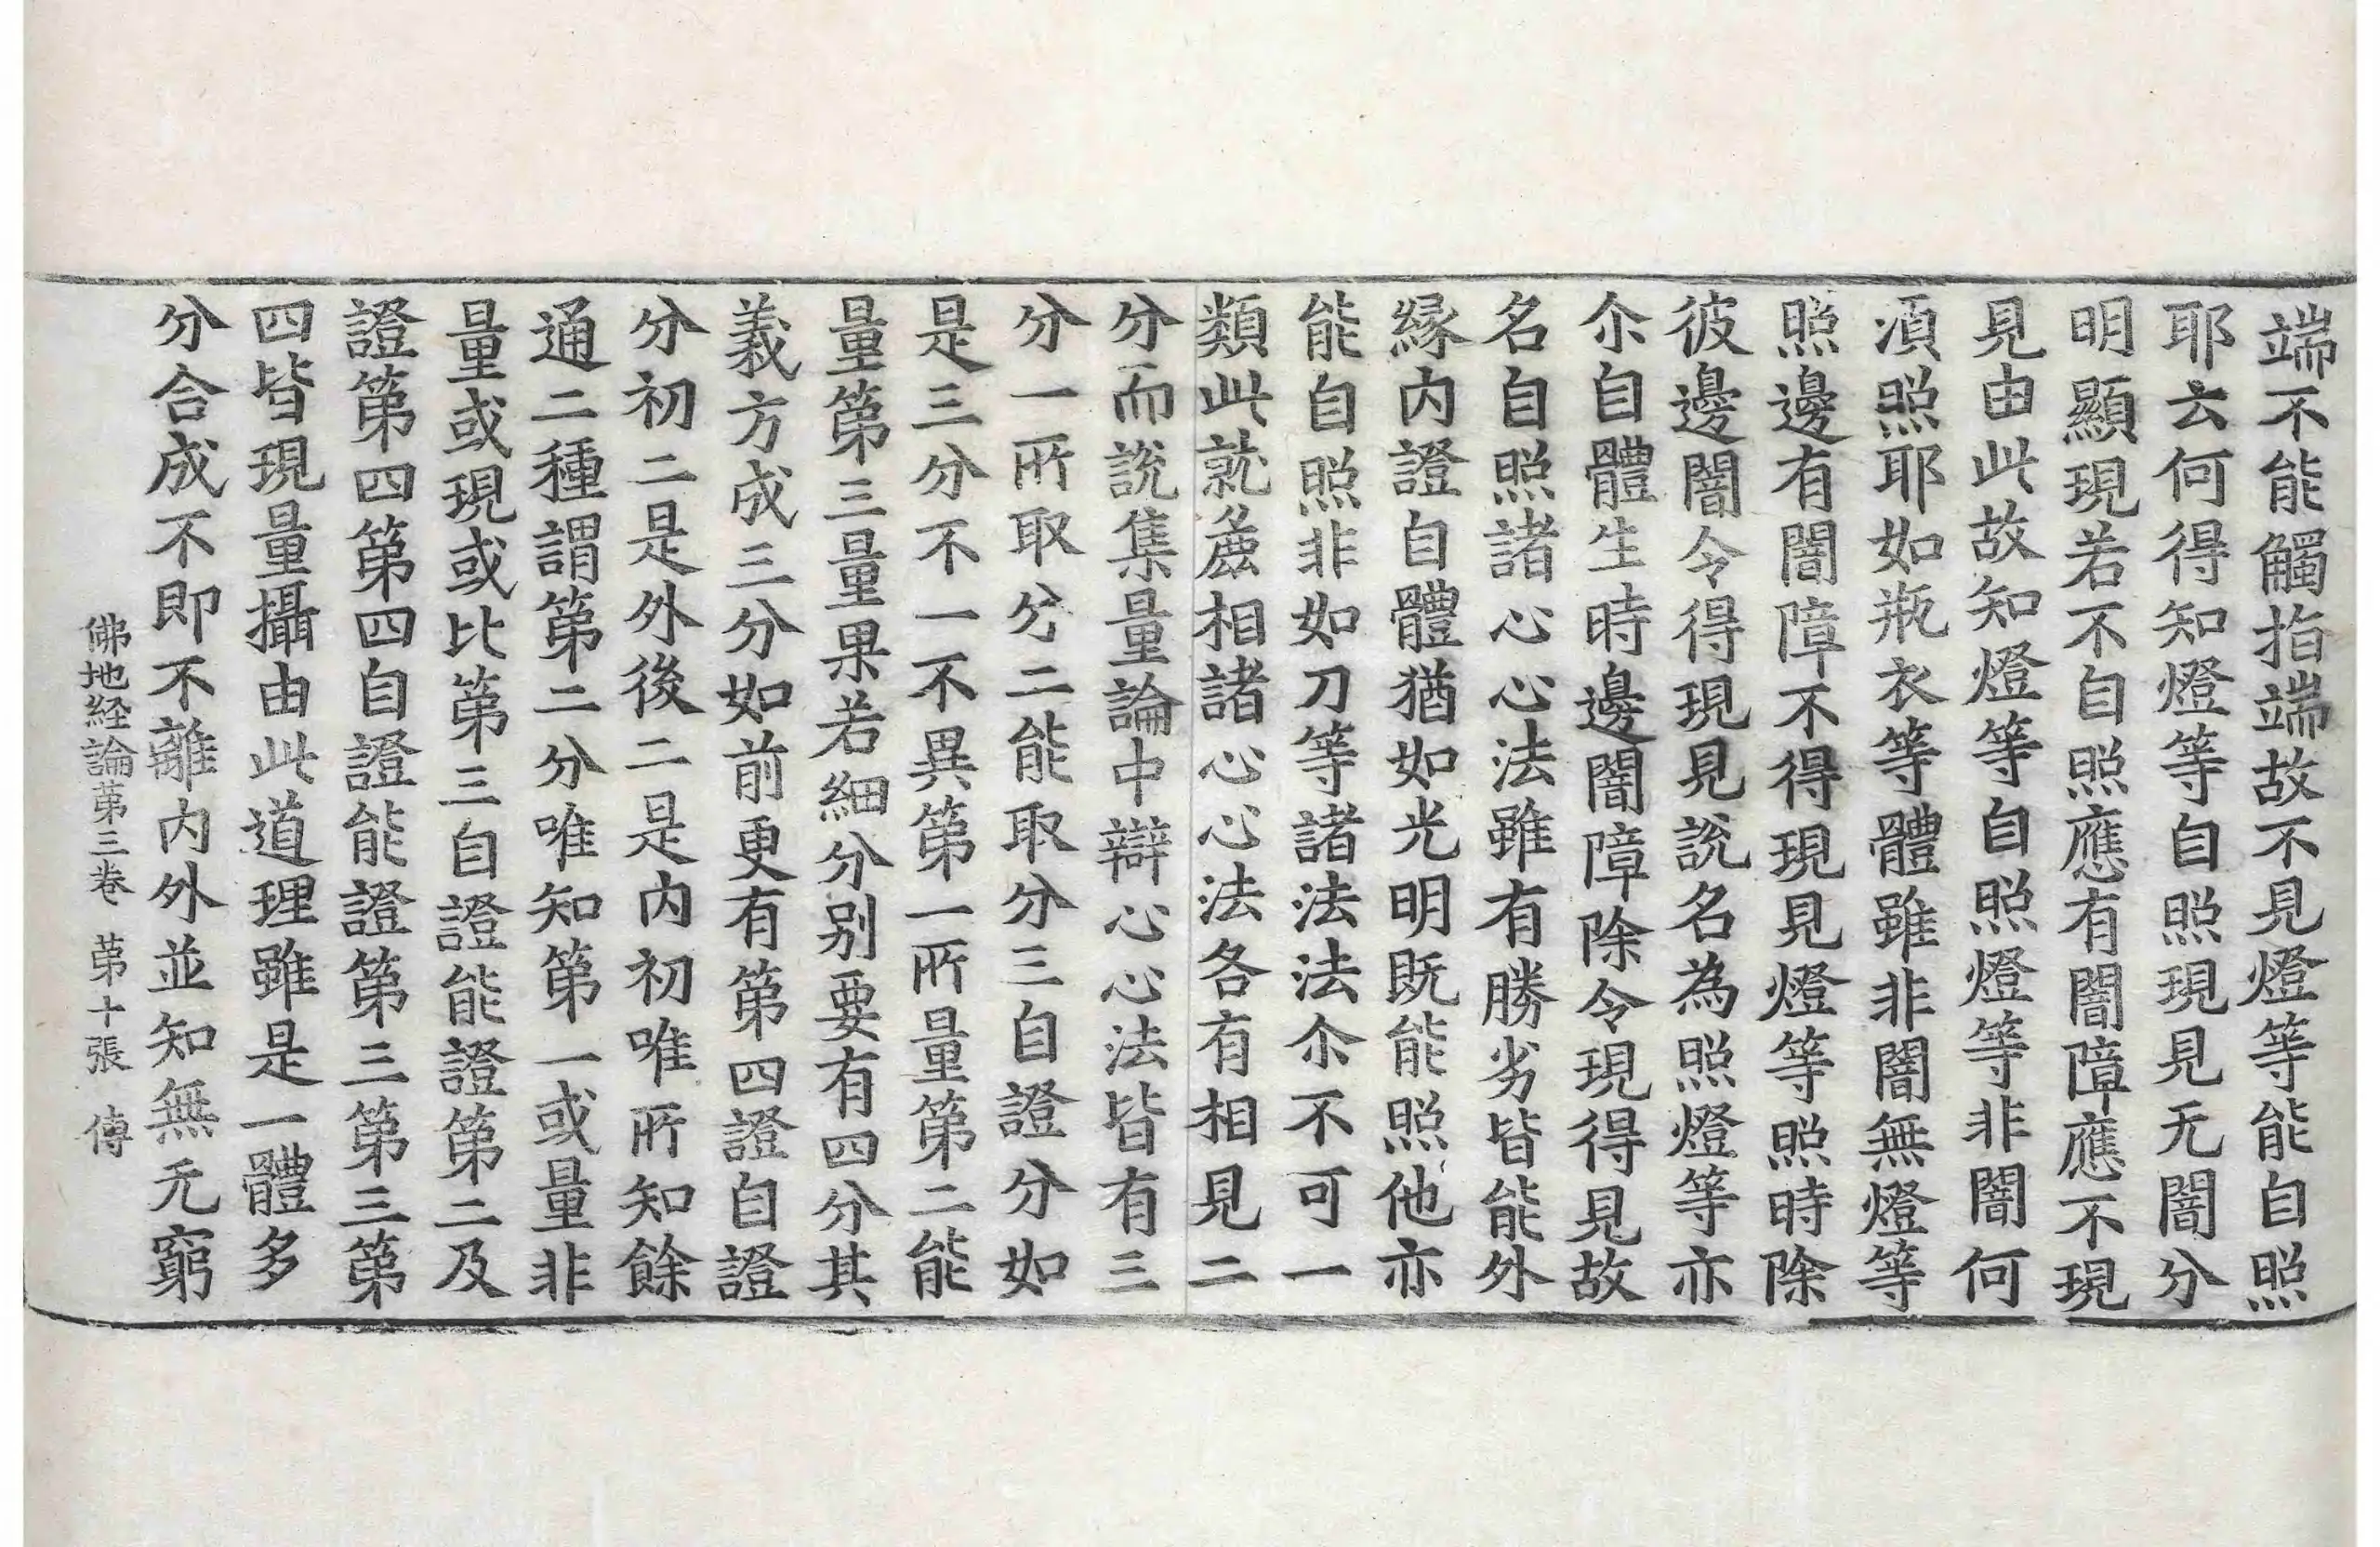 端不能觸指端故不見燈等能自照
耶云何得知燈等自照現見无闇分
明顯現若不自照應有闇障應不現
見由此故知燈等自照燈等非闇何
湏照耶如瓶衣等體雖非闇無燈等
照邊有闇障不得現見燈等照時除
彼邊闇令得現見說名為照燈等亦
尒自體生時邊闇障除令現得見故
名自照諸心心法雖有勝劣皆能外
縁内證自體猶如光明既能照他亦
能自照非如刀等諸法法尒不可一
類此就麁相諸心心法各有相見二
分而說集量論中辯心心法皆有三
分一所取分二能取分三自證分如
是三分不一不異第一所量第二能
量第三量果若細分別要有四分其
義方成三分如前更有第四證自證
分初二是外後二是内初唯所知餘
通二種謂第二分唯知第一或量非
量或現或比第三自證能證第二及
證第四第四自證能證第三第三第
四皆現量攝由此道理雖是一體多
分合成不即不離内外並知無无窮
佛地経論苐三卷 苐十張 傳